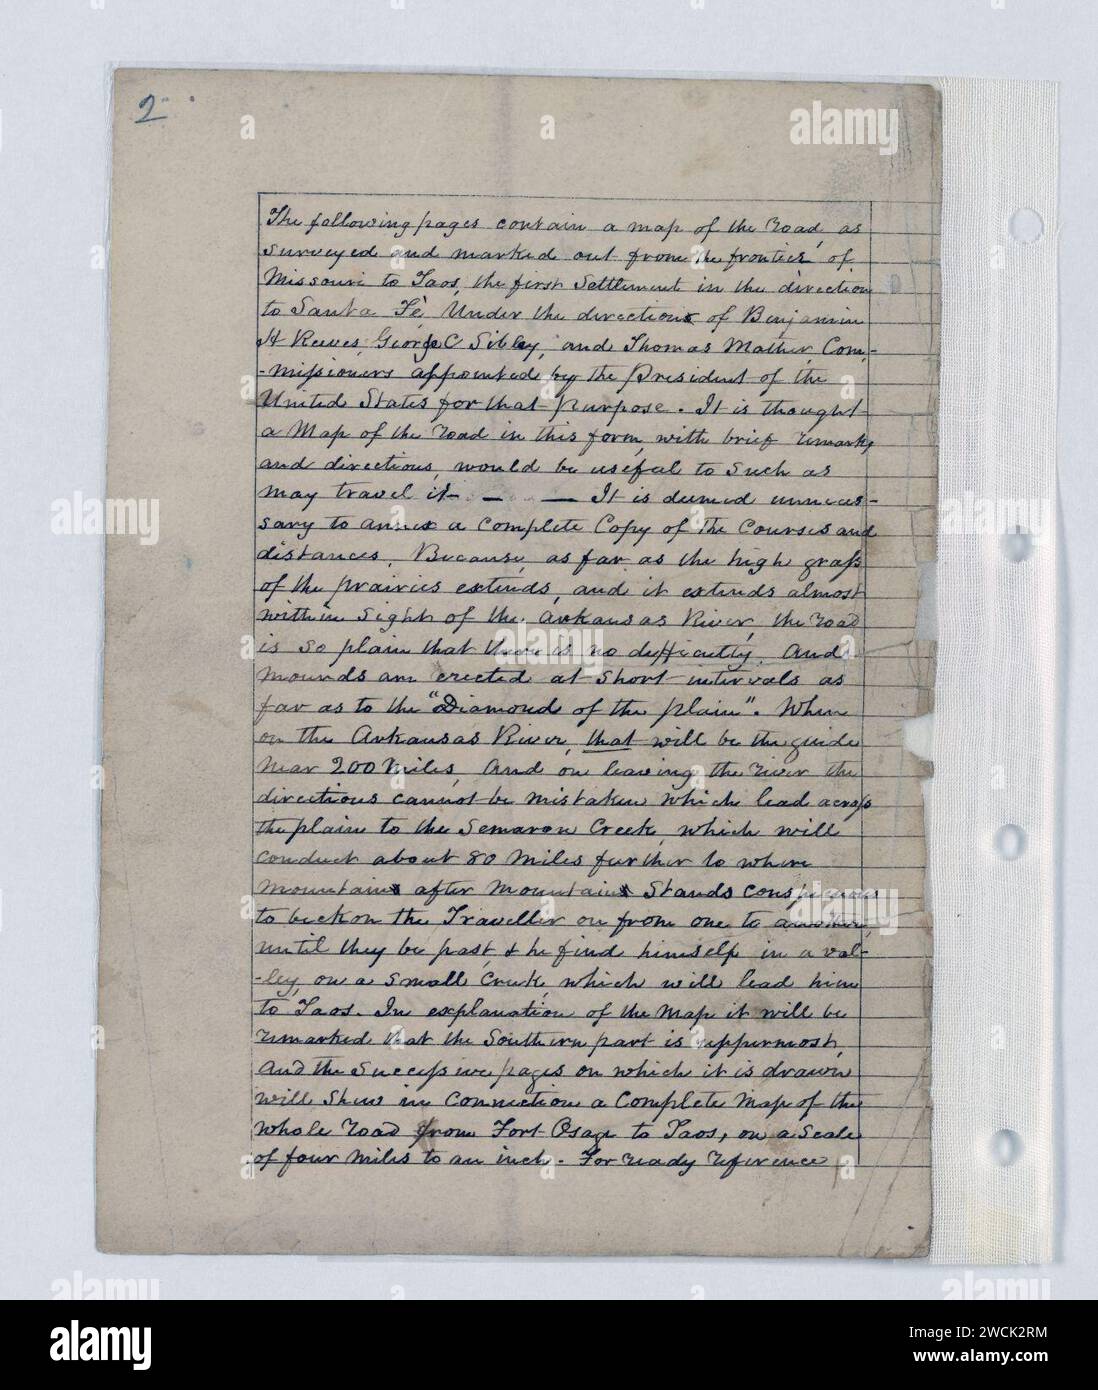 2
The following pages contain a map of the road, as
surveyed and marked out from the frontier of
Missouri to Taos, the first Settlement in the direction
to Santa Fè. Under the direction of Benjamin
H Reeves, George C Sibley, and Thomas Mather Com-
-missioners appointed by the President of the
United States for that purpose. It is thought
a Map of the road in this form, with brief remarks,
and directions, would be useful to such as
may travel it — — It is deemed unneces-
sary to annex a complete Copy of the Courses and
distances. Because, as far as the high grass
of the prairies extends, and it extends almost
within sight of the Arkansas River, the road
is so plain that there is no difficulty. And
mounds are erected at short intervals as
far as to the "Diamond of the plain". When
on the Arkansas River, that will be the guide
near 200 miles, and on leaving the river the
directions cannot be mistaken which lead across
the plain to the Semaron Creek, which will
conduct about 80 miles further to where
Mountain after Mountain Stands conspicuous
to beckon the Traveller on from one to another,
until they be past, & he find himself in a val-
-ley, on a small Creek, which will lead him
to Taos. In explanation of the Map it will be
remarked that the Southern part is uppermost,
and the successive pages on which it is drawn
will shew in connection a complete Map of the
whole road from Fort Osage to Taos, on a Scale
of four miles to an inch. For ready reference
alamy
a
Image ID: 2WCK2RM
www.alamy.com